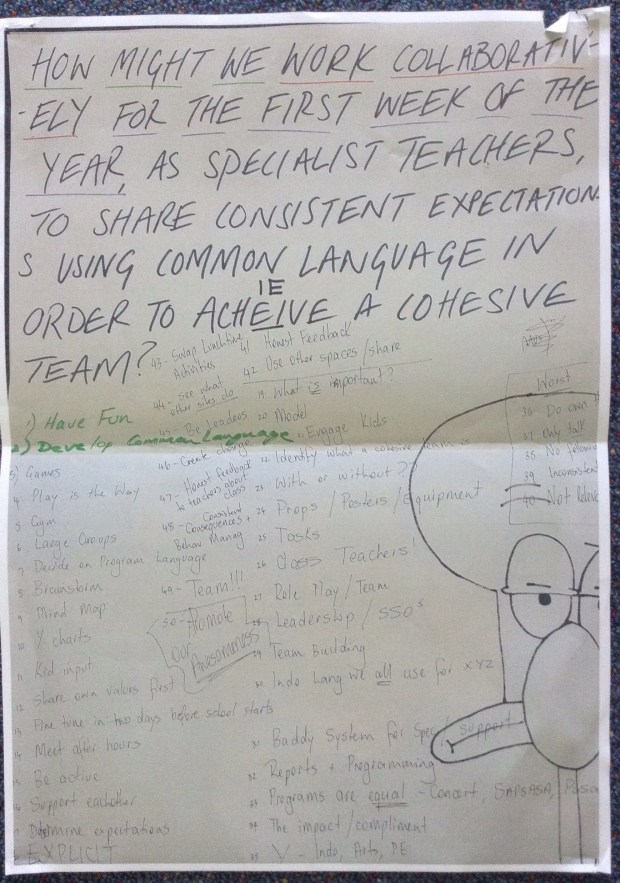 HOW MIGHT WE WORK COLLABORATIV-
-ELY FOR THE FIRST WEEK OF THE
YEAR, AS SPECIALIST TEACHERS,
TO SHARE CONSISTENT EXPECTATION
S USING COMMON LANGUAGE IN
ORDER TO ACHEIVE A COHESIVE
IE
TEAM?
1) Have Fun
2) Develop Common Language
3) Games
4 Play is the Way
5 Gym
6 Large Groups
7 Decide on Program Language
8 Brainstorm
9 Mind Map
10 Y charts
11 Kid input
12 Share own values first
13 Fine tune in two days before school starts
14 Meet after hours
15 Be active
16 Support eachother
17 Determine expectations
EXPLICIT
43 - Swap Lunchtime
Activities
44 - See what
other sites do
45 - Be Leaders
46 - Create change
47 - Honest feedback
to teachers about
class
48 - Consistent
Consequences +
Behav Manag
49 - Team!!!
50 - Promote
our
Awesomeness
41 Honest Feedback
42 Use other spaces/share
19 What is important?
20 Model
Engage Kids
22 Identify what a cohesive team is
23 With or without??
24 Props / Posters / Equipment
25 Tasks
26 Class Teachers!
27 Role Play / Team
28 Leadership / SSOs
29 Team Building
30 Indo Lang we all use for xyz
31 Baddy System for support
32 Reports + Programming
33 Programs are equal - Concert, SAPSASA,
34 The impact/compliment
35 V - Indo, Arts, PE
Worst
36 Do own
37 Only talk
38 No follow
39 Inconsistent
40 Not